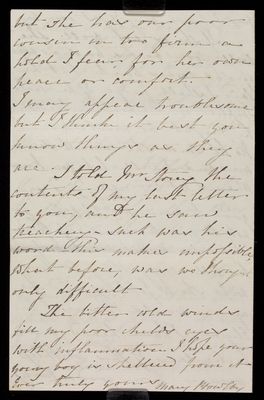 but she has our poor
cousin in too firm a
hold I fear for her own
peace or comfort.
I may appear troublesome
but I think it best you
know things as they
are. I told Mr the
contents of my last letter
to you, and he said
treachery - such was his
word this makes impossible,
what before, was we thought
only difficult
The bitter cold winds
fill my poor child's eyes
with inflammation. I hope your
young boy is sheltered from it
Ever truly yours Mary Howitt